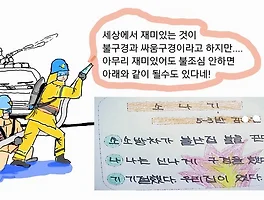 세상에서 재미있는 것이
불구경과 싸움구경이라고 하지만....
아무리 재미있어도 불조심 안하면
아래와 같이 될수도 있다네!
소 나 기
소 소방차가 불난집 불을 끈다
나 나는 신나게 구경을 했다
기 기절했다. 우리집이 였다.